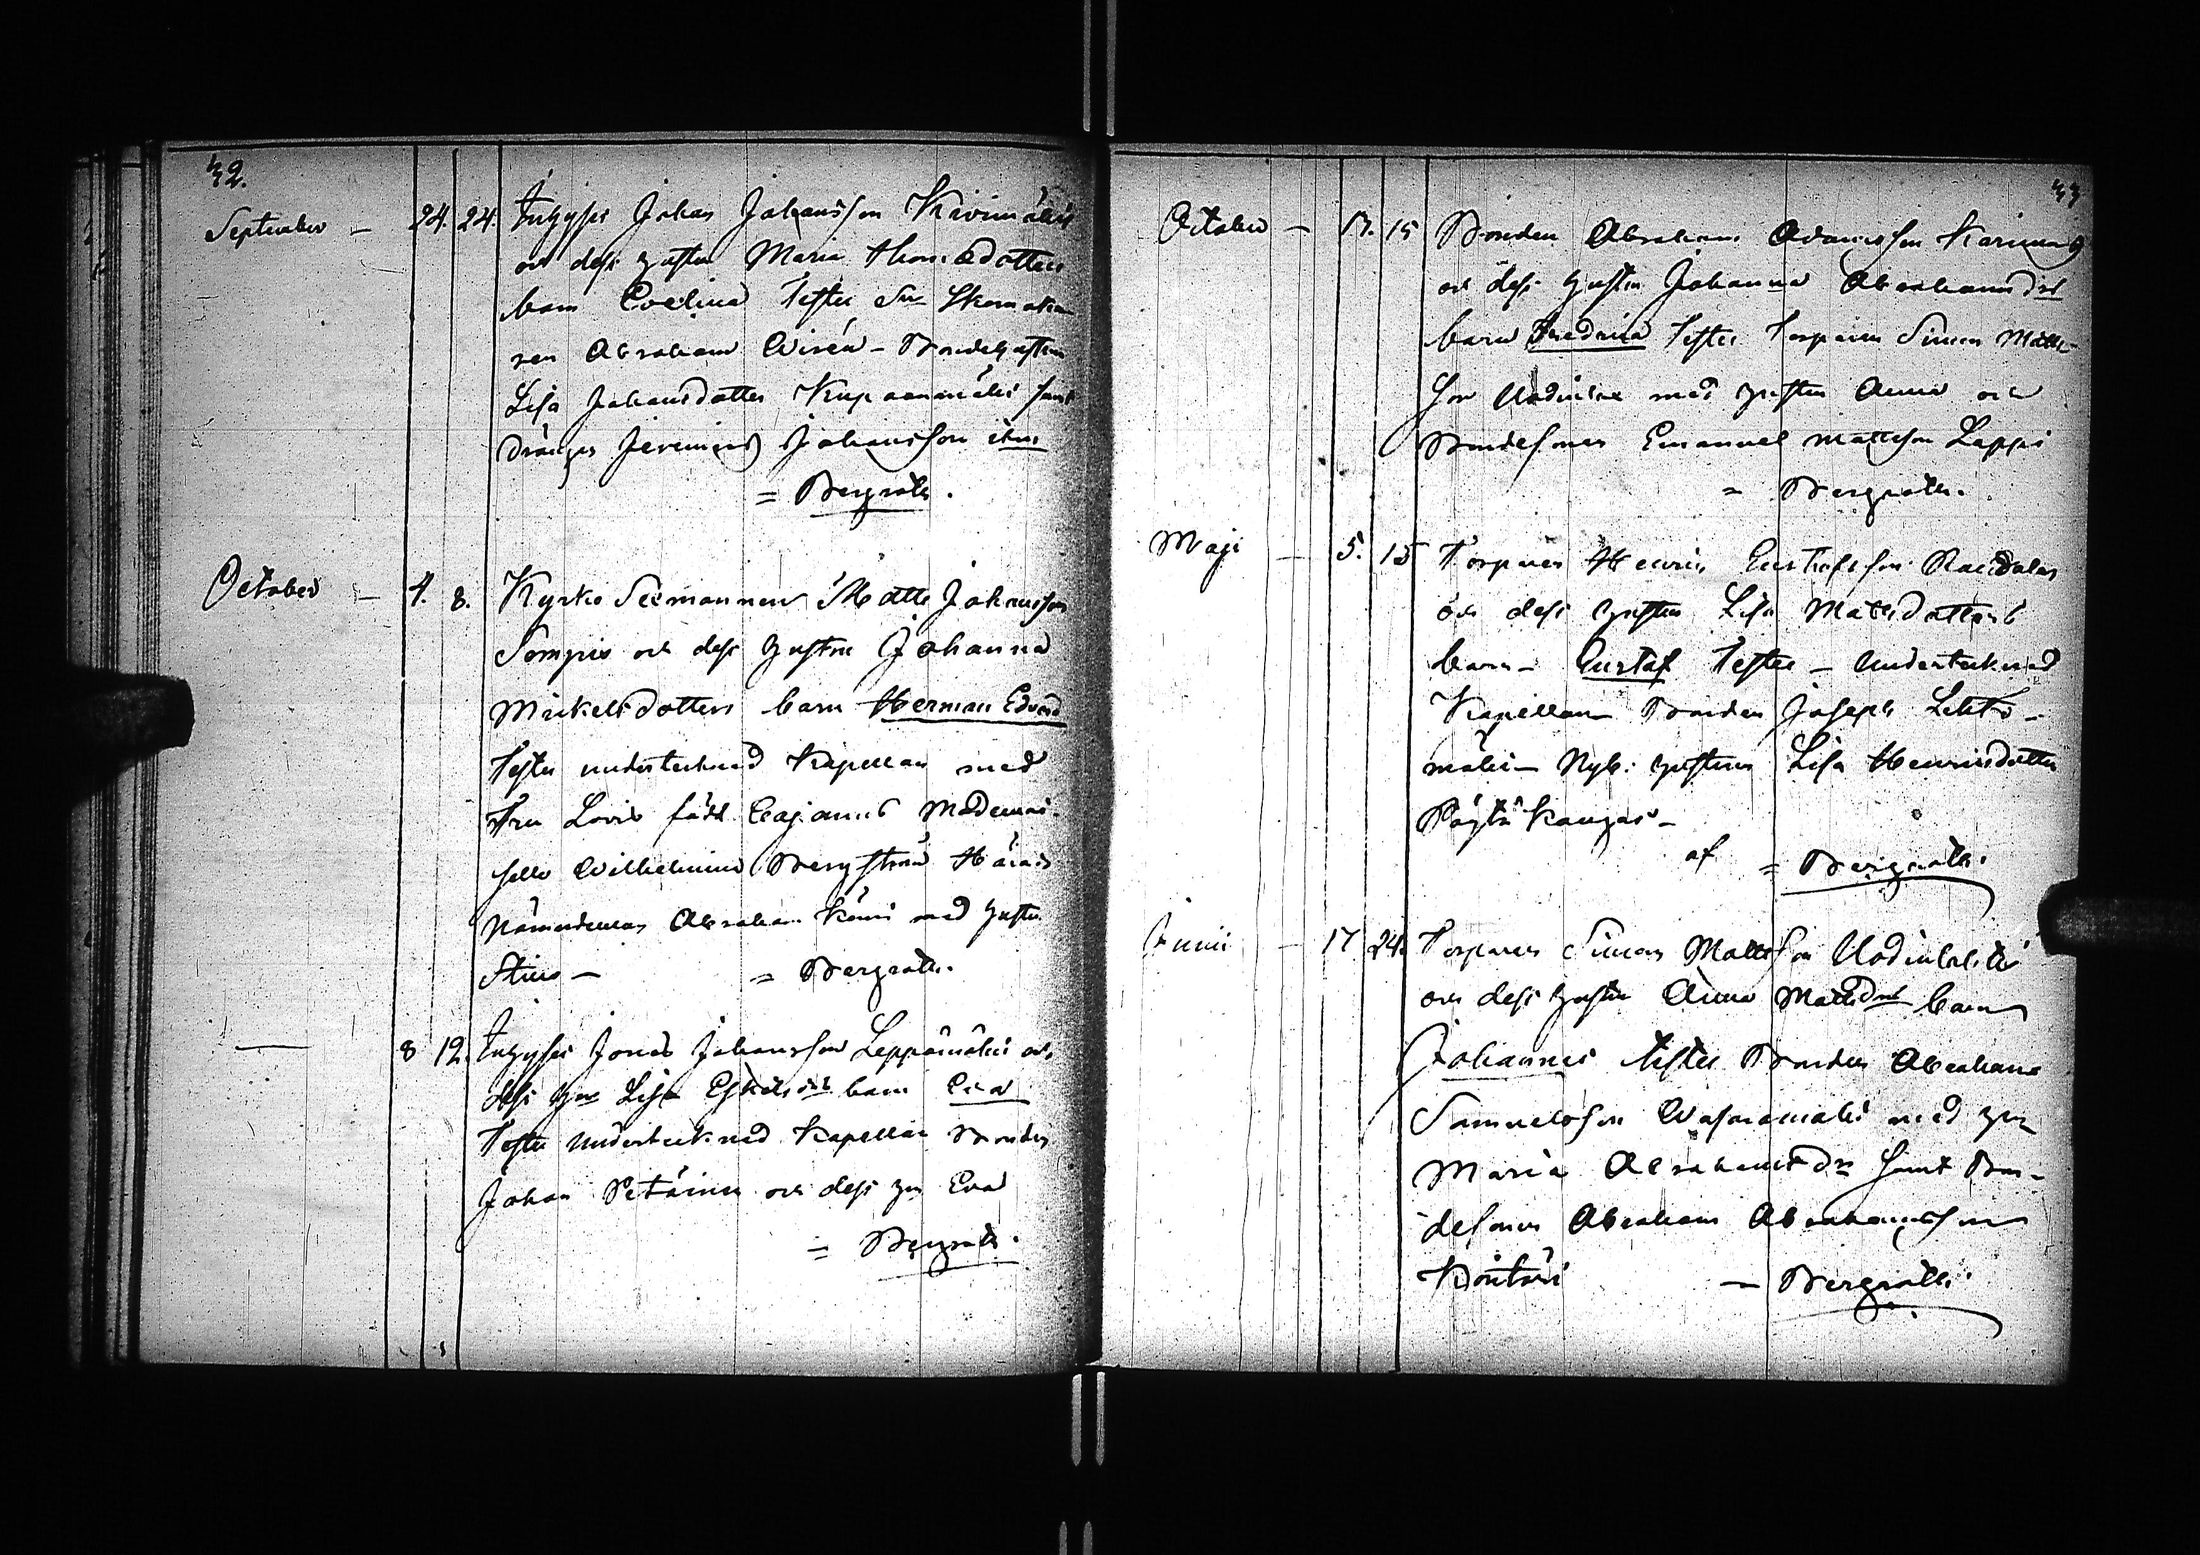 42.
September - 24. 24. Inhyses Johan Johansson Kivimäki
och dess hustru Maria Thomædotters
barn Evelina Testes Sn Skomaka-
ren Abraham Wirén - Bondehustrun
Lisa Johansdotter Kupaanmäki samt
drängen Jeremias Johansson ibm
= Bergroth.
October - 4. 8. Kyrko Sexmannen Matts Johansson
Sompis och dess hustru Johanna
Mickelsdotters barn Herman Edvard
Testes undertecknad Kapellan med
Fru Lovis född Cajanus Mademoi-
selle Wilhelmina Bergström Härads
Nämndeman Abraham med hustru
Stina - = Bergroth.
— 8 12. Inhyses Jonas Johansson Leppämäki och
dess hu Lisa barn Eva
Testes undertecknad Kapellan Bonden
Johan och dess hu Eva
= Bergroth.
43
October - 13. 15 Bonden Abraham Adamsson
och dess hustru Johanna Abrahamsdrs
barn Fredrica Testes Torparen Simon Matts-
son med hustru Anna och
Bondesonen Emanuel Mattsson Leppi
= Bergroth.
Maji - 5. 15 Torparen Henric Gustafsson
och dess hustru Lisa Mattsdotters
barn - Gustaf Testes - Undertecknad
Kapellan Bonden Joseph Lehto-
mäki - Nyb: hustrun Lisa Henricsdotter
Pöytäkangas -
af = Bergroth.
Junii - 17 24. Torparen Simon Mattsson
och dess hustru Anna Mattsdrs barn
Johannes testes Bonden Abraham
Samuelsson med hu
Maria Abrahamsdr samt Bon-
desonen Abraham Abrahamsson
- Bergroth.